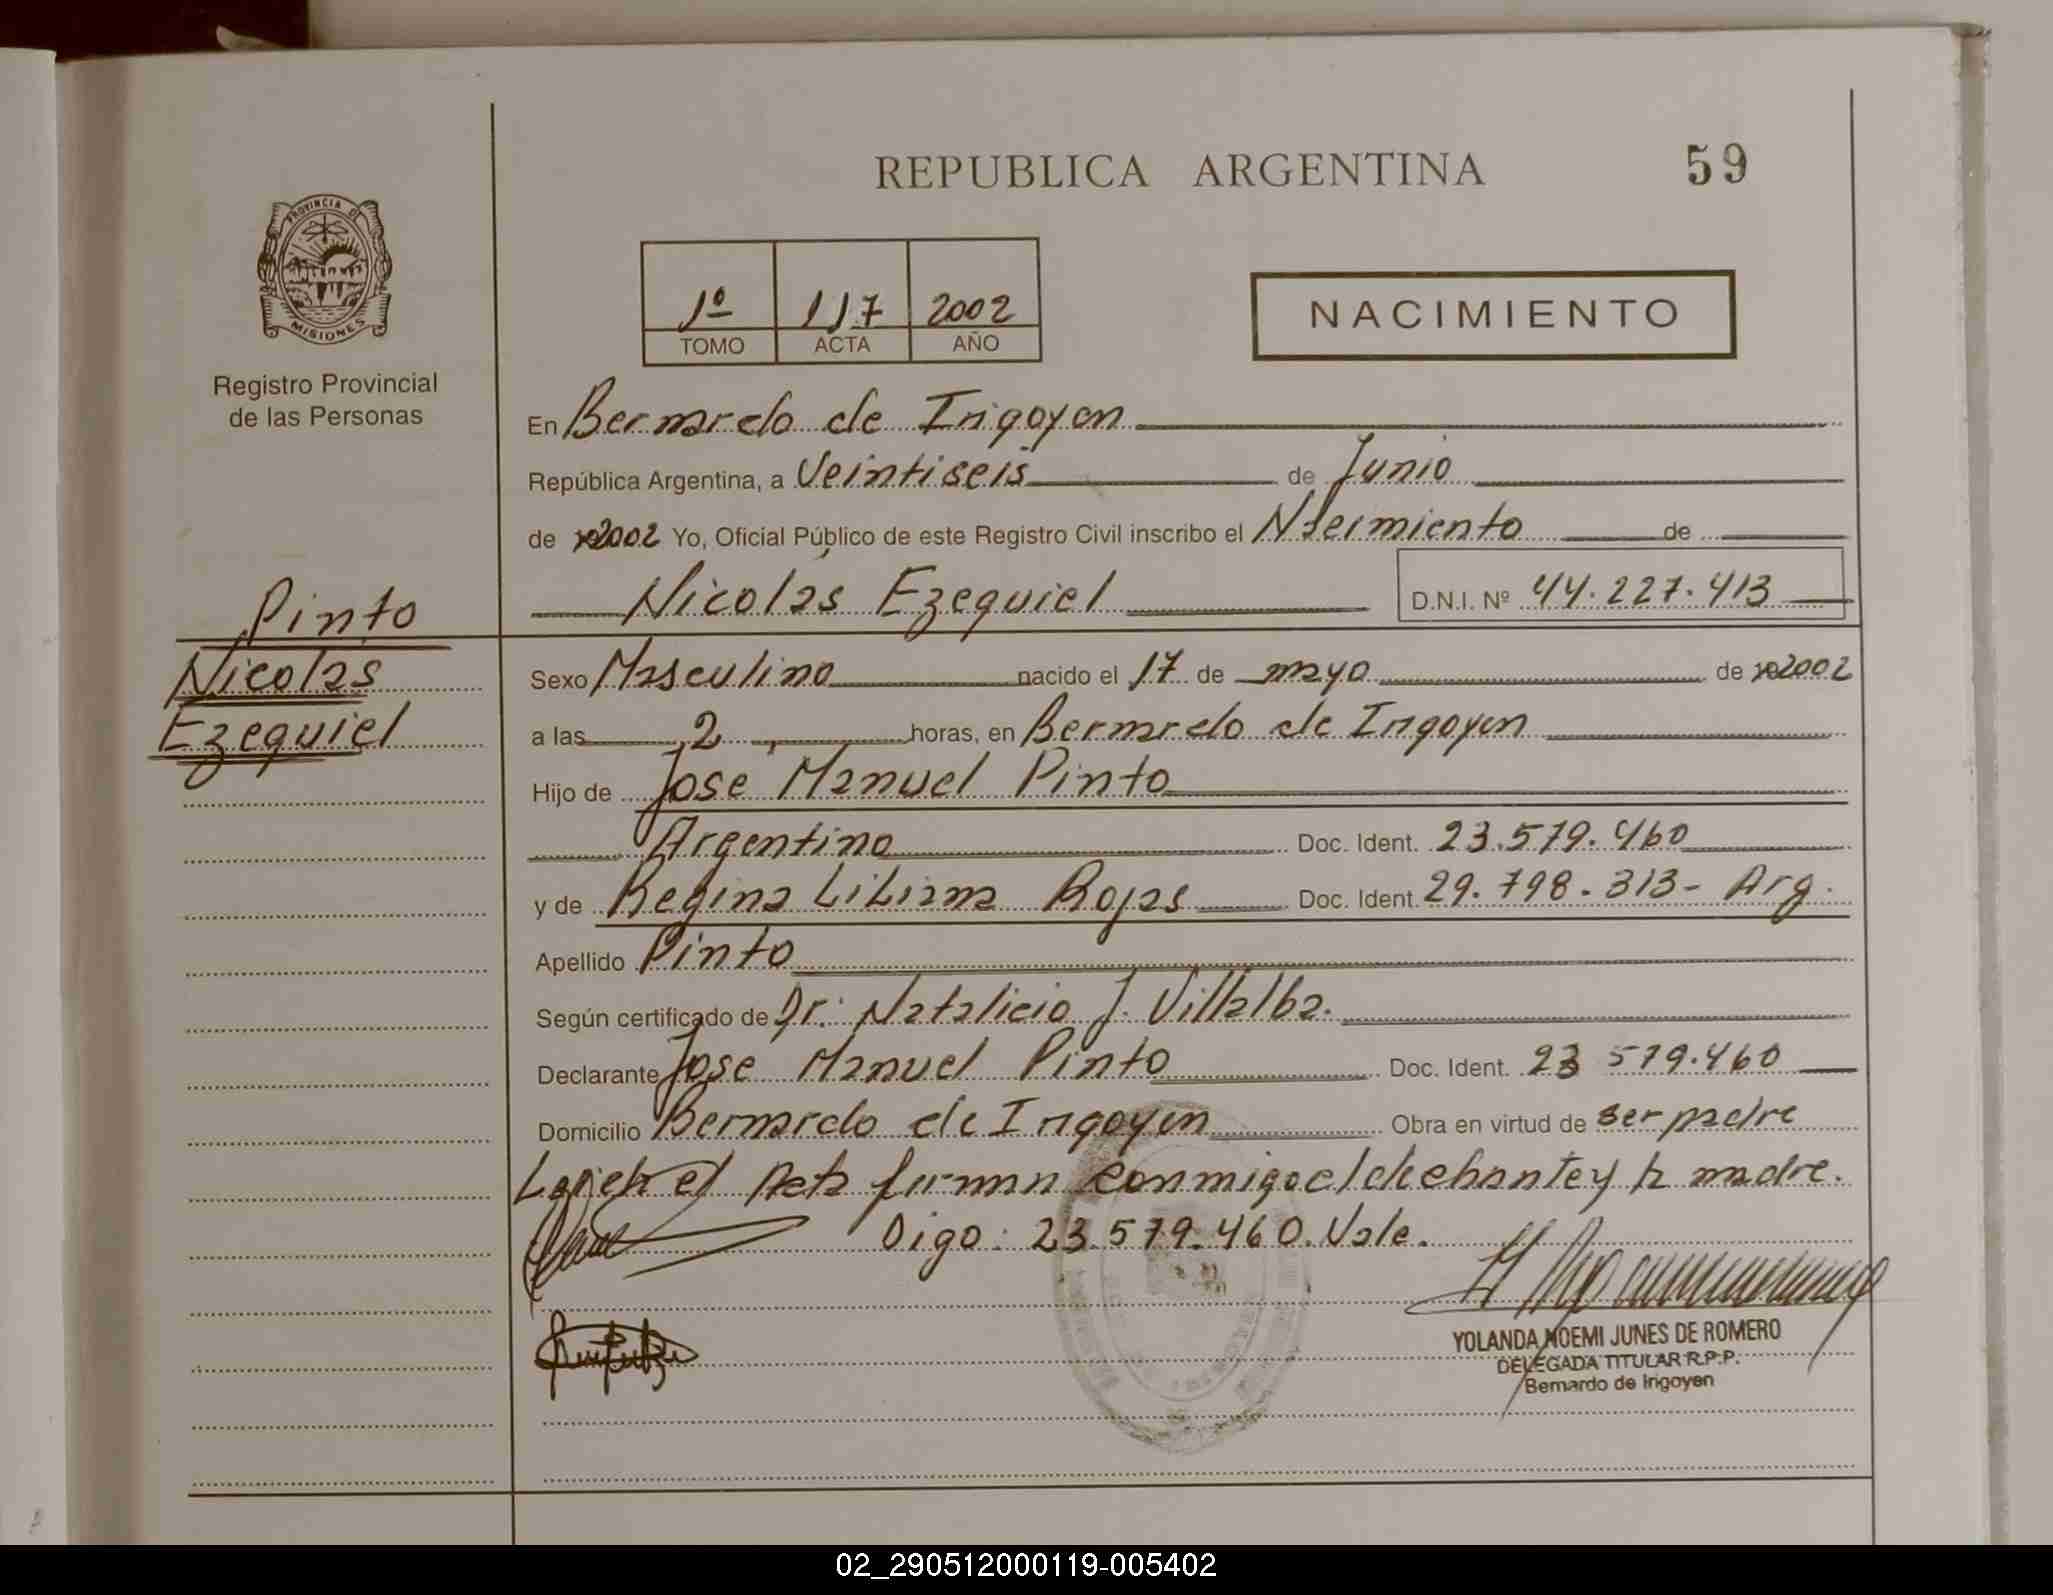 REPUBLICA ARGENTINA
59
PROVINCIA DE
MISIONES
Registro Provincial
de las Personas
1º 117 2002
TOMO ACTA AÑO
NACIMIENTO
En Bernardo de Irigoyen
República Argentina, a Veintiseis de Junio
de 2002 Yo, Oficial Público de este Registro Civil inscribo el Nacimiento de
Nicolás Ezequiel D.N.I. Nº 44.227.413
Pinto
Nicolas
Ezequiel
Sexo Masculino nacido el 17 de mayo de 2002
a las 2 horas, en Bernardo de Irigoyen
Hijo de Jose Manuel Pinto
Argentino Doc. Ident. 23.579.460
y de Regina Liliana Rojas Doc. Ident. 29.798.313- Arg.
Apellido Pinto
Según certificado de Dr. Natalicio J. Villalba.
Declarante Jose Manuel Pinto Doc. Ident. 23 579.460
Domicilio Bernardo de Irigoyen Obra en virtud de ser padre
Leida el Acta firman conmigo el declarante y la madre.
Digo: 23.579.460. Vale.
YOLANDA NOEMI JUNES DE ROMERO
DELEGADA TITULAR R.P.P.
Bernardo de Irigoyen
02_290512000119-005402